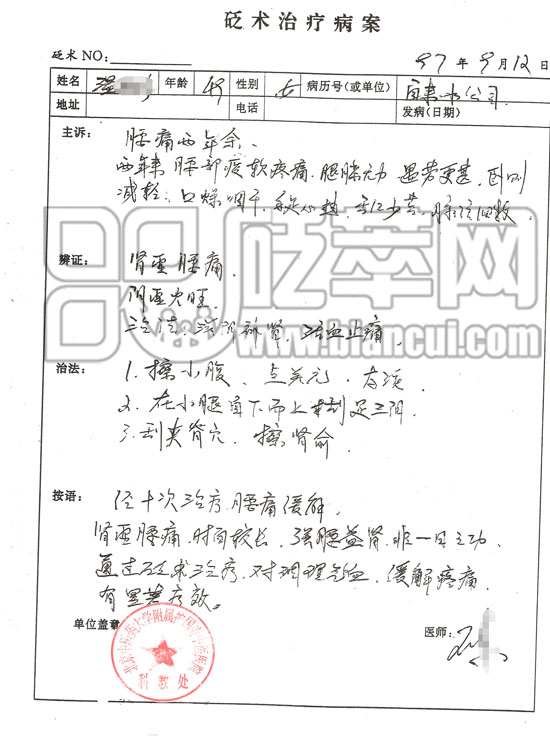 砭术治疗病案
砭术NO: 97年9月12日
姓名 年龄 49 性别 女 病历号(或单位) 自来水公司
地址 电话 发病(日期)
主诉: 腰痛两年余.
两年来 腰部痠软疼痛. 腿膝无力 遇劳更甚, 卧则
减轻. 口燥咽干, 手足心热, 舌红少苔, 脉弦细数
辨证: 肾虚腰痛.
阴虚火旺.
治法: 滋阴补肾, 活血止痛.
治法: 1. 擦小腹, 点关元.
2. 在小腿自下而上刮足三阴
3. 刮夹脊穴. 擦肾俞
按语: 经十次治疗, 腰痛缓解.
肾虚腰痛, 时间较长, 强腰益肾, 非一日之功,
通过砭术治疗, 对调理气血, 缓解疼痛,
有显著疗效.
单位盖章: 医师:
北京中医药大学附属护国寺中医医院
科教处
砭萃网
www.biancui.com